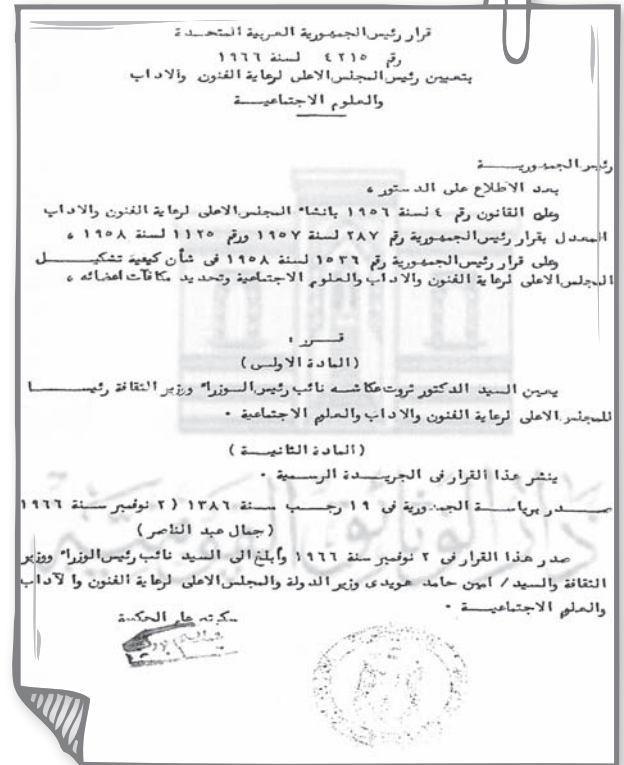 قرار رئيس الجمهورية العربية المتحدة
رقم ٤٢١٥ لسنة ١٩٦٦
بتعيين رئيس المجلس الاعلى لرعاية الفنون والاداب
والعلوم الاجتماعية
رئيس الجمهورية
بعد الاطلاع على الدستور ،
وعلى القانون رقم ٤ لسنة ١٩٥٦ بانشاء المجلس الاعلى لرعاية الفنون والاداب
المعدل بقرار رئيس الجمهورية رقم ٢٨٧ لسنة ١٩٥٧ ورقم ١١٢٥ لسنة ١٩٥٨ ،
وعلى قرار رئيس الجمهورية رقم ١٥٣٦ لسنة ١٩٥٨ فى شأن كيفية تشكيل
المجلس الاعلى لرعاية الفنون والاداب والعلوم الاجتماعية وتحديد مكافآت اعضائه ،
قرر :
(المادة الاولى)
يعين السيد الدكتور ثروت عكاشه نائب رئيس الوزراء ووزير الثقافة رئيسا
للمجلس الاعلى لرعاية الفنون والاداب والعلوم الاجتماعية .
(المادة الثانية)
ينشر هذا القرار فى الجريدة الرسمية .
صدر برياسة الجمهورية فى ١٩ رجب سنة ١٣٨٦ (٢ نوفمبر سنة ١٩٦٦
(جمال عبد الناصر)
صدر هذا القرار فى ٢ نوفمبر سنة ١٩٦٦ وأبلغ الى السيد نائب رئيس الوزراء ووزير
الثقافة والسيد / امين حامد هويدى وزير الدولة والمجلس الاعلى لرعاية الفنون والآداب
والعلوم الاجتماعية .
دار الوثائق القومية